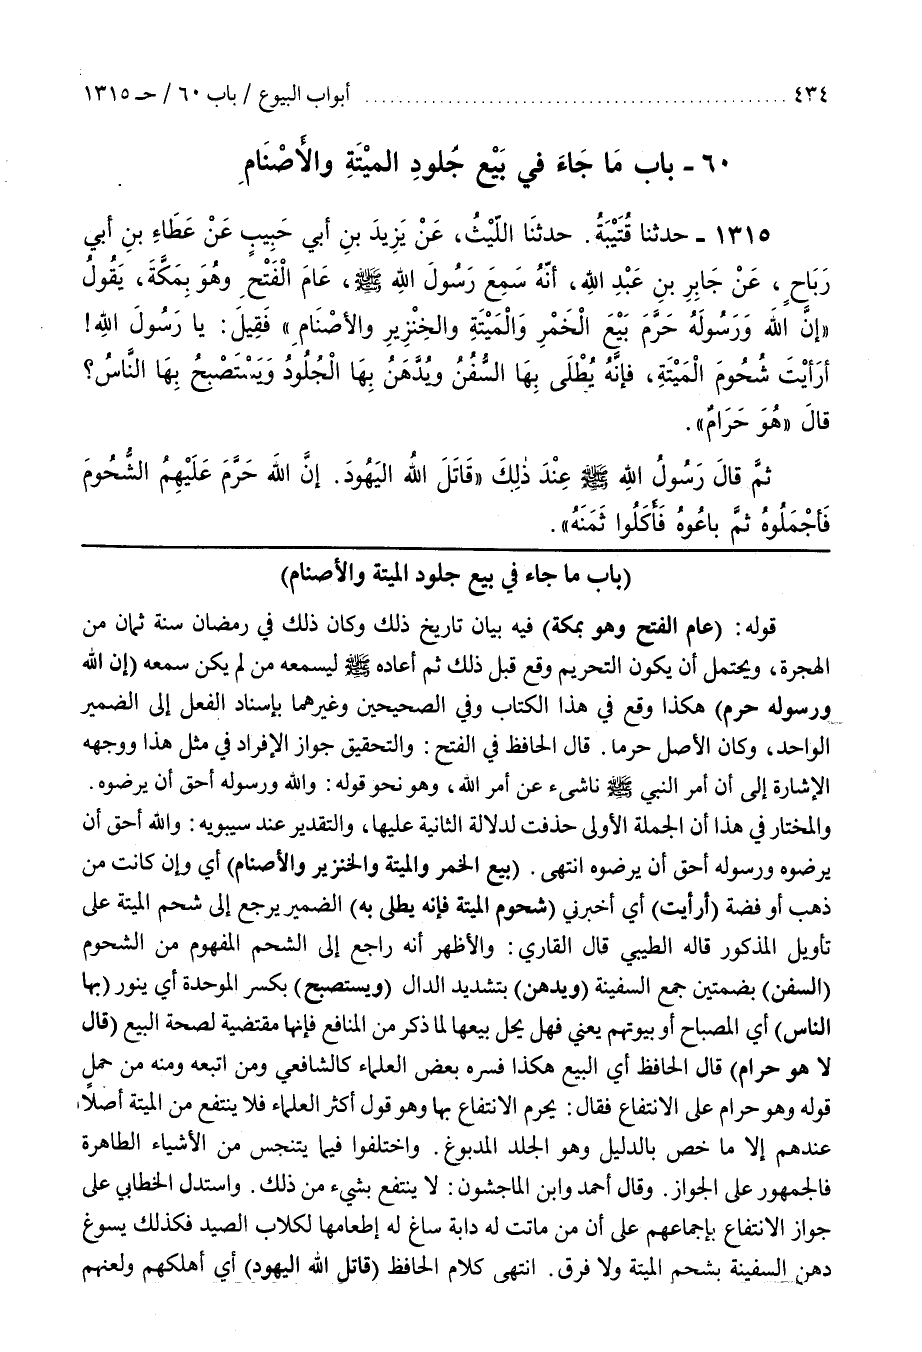 ٤٣٤ ........................................ أبواب البيوع / باب ٦٠ / حـ ١٣١٥
٦٠ - باب مَا جَاءَ في بَيْعِ جُلودِ الميْتَةِ والأَصْنَامِ
١٣١٥ - حدثنا قُتَيْبَةُ. حدثنَا اللّيْثُ، عَنْ يَزِيدَ بنِ أبي حَبِيبٍ عَنْ عَطَاءِ بنِ أبي
رَبَاحٍ، عَنْ جَابِرِ بنِ عَبْدِ الله، أنَّهُ سَمِعَ رَسُولَ الله ﷺ، عَامَ الْفَتْحِ وهُوَ بِمَكَّةَ، يَقُولُ
«إنَّ الله وَرَسُولَهُ حَرَّمَ بَيْعَ الْخَمْرِ وَالْمَيْتَةِ والخِنْزِيرِ والأصْنَامِ» فَقِيلَ: يا رَسُولَ الله!
أرَأيْتَ شُحُومَ الْمَيْتَةِ، فإنَّهُ يُطْلَى بِهَا السُّفُنُ ويُدَّهَنُ بِهَا الْجُلُودُ وَيَسْتَصْبِحُ بِهَا النَّاسُ؟
قالَ «هُوَ حَرَامٌ».
ثمَّ قالَ رَسُولُ الله ﷺ عِنْدَ ذٰلِكَ «قَاتَلَ اللهُ اليَهُودَ. إنَّ الله حَرَّمَ عَلَيْهِمُ الشُّحُومَ
فَأجْمَلُوهُ ثمَّ باعُوهُ فَأَكَلُوا ثَمَنَهُ».
(باب ما جاء في بيع جلود الميتة والأصنام)
قوله: (عام الفتح وهو بمكة) فيه بيان تاريخ ذلك وكان ذلك في رمضان سنة ثمان من
الهجرة، ويحتمل أن يكون التحريم وقع قبل ذلك ثم أعاده ﷺ ليسمعه من لم يكن سمعه (إن الله
ورسوله حرم) هكذا وقع في هذا الكتاب وفي الصحيحين وغيرهما بإسناد الفعل إلى الضمير
الواحد، وكان الأصل حرما. قال الحافظ في الفتح: والتحقيق جواز الإفراد في مثل هذا ووجهه
الإشارة إلى أن أمر النبي ﷺ ناشىء عن أمر الله، وهو نحو قوله: والله ورسوله أحق أن يرضوه.
والمختار في هذا أن الجملة الأولى حذفت لدلالة الثانية عليها، والتقدير عند سيبويه: والله أحق أن
يرضوه ورسوله أحق أن يرضوه انتهى. (بيع الخمر والميتة والخنزير والأصنام) أي وإن كانت من
ذهب أو فضة (أرأيت) أي أخبرني (شحوم الميتة فإنه يطلى به) الضمير يرجع إلى شحم الميتة على
تأويل المذكور قاله الطيبي قال القاري: والأظهر أنه راجع إلى الشحم المفهوم من الشحوم
(السفن) بضمتين جمع السفينة (ويدهن) بتشديد الدال (ويستصبح) بكسر الموحدة أي ينور (بها
الناس) أي المصباح أو بيوتهم يعني فهل يحل بيعها لما ذكر من المنافع فإنها مقتضية لصحة البيع (قال
لا هو حرام) قال الحافظ أي البيع هكذا فسره بعض العلماء كالشافعي ومن اتبعه ومنه من حمل
قوله وهو حرام على الانتفاع فقال: يحرم الانتفاع بها وهو قول أكثر العلماء فلا ينتفع من الميتة أصلًا،
عندهم إلا ما خص بالدليل وهو الجلد المدبوغ. واختلفوا فيما يتنجس من الأشياء الطاهرة
فالجمهور على الجواز. وقال أحمد وابن الماجشون: لا ينتفع بشيء من ذلك. واستدل الخطابي على
جواز الانتفاع بإجماعهم على أن من ماتت له دابة ساغ له إطعامها لكلاب الصيد فكذلك يسوغ
دهن السفينة بشحم الميتة ولا فرق. انتهى كلام الحافظ (قاتل الله اليهود) أي أهلكهم ولعنهم